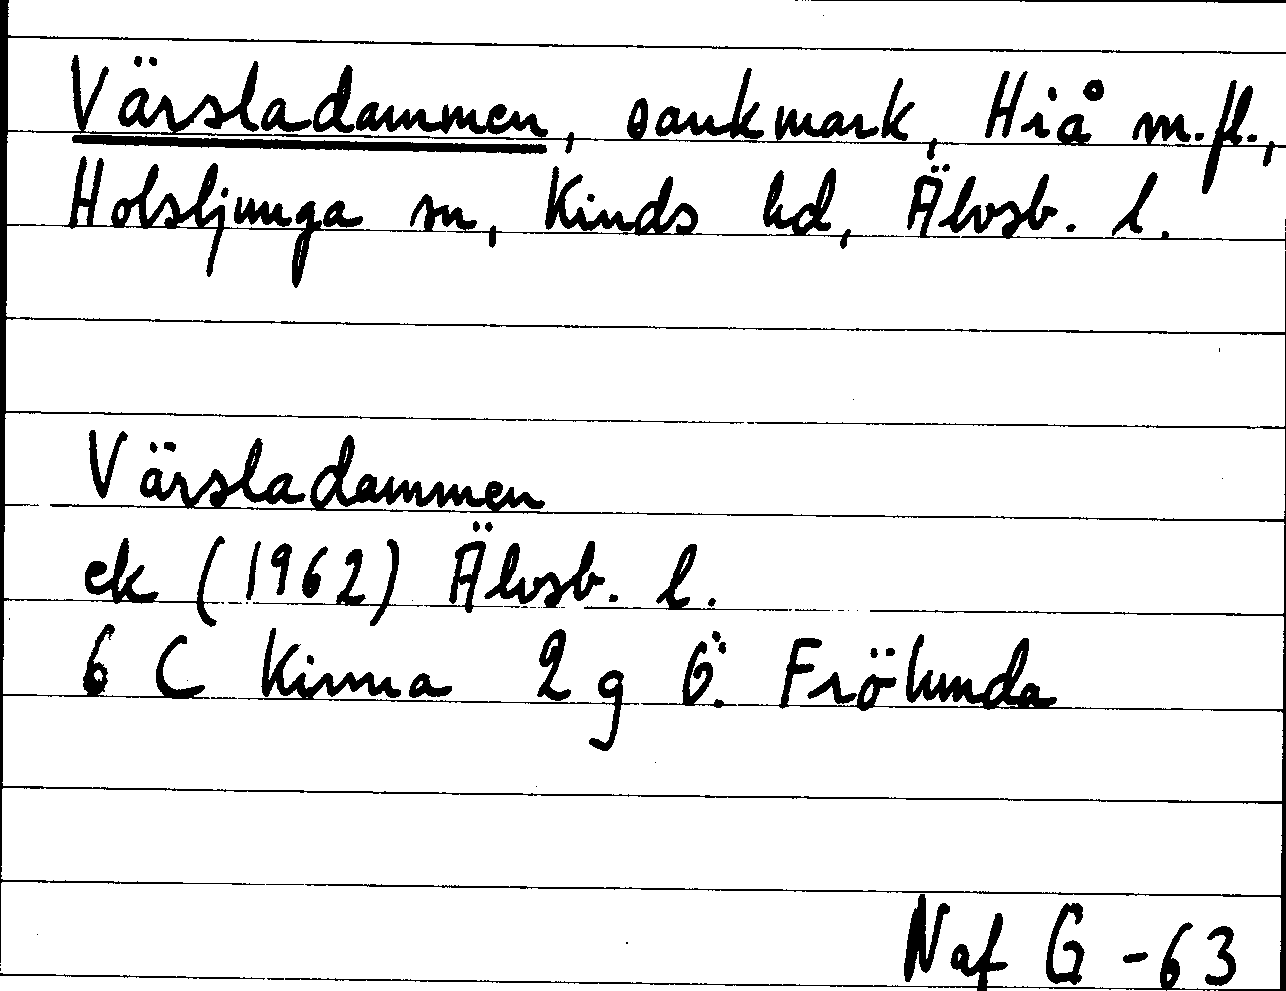 Värsladammen, sankmark, Hiå m.fl.,
Holsljunga sn, Kinds hd, Älvsb. l.
Värsladammen
ek (1962) Älvsb. l.
6 C Kinna 2 g Ö. Frölunda
Naf G -63